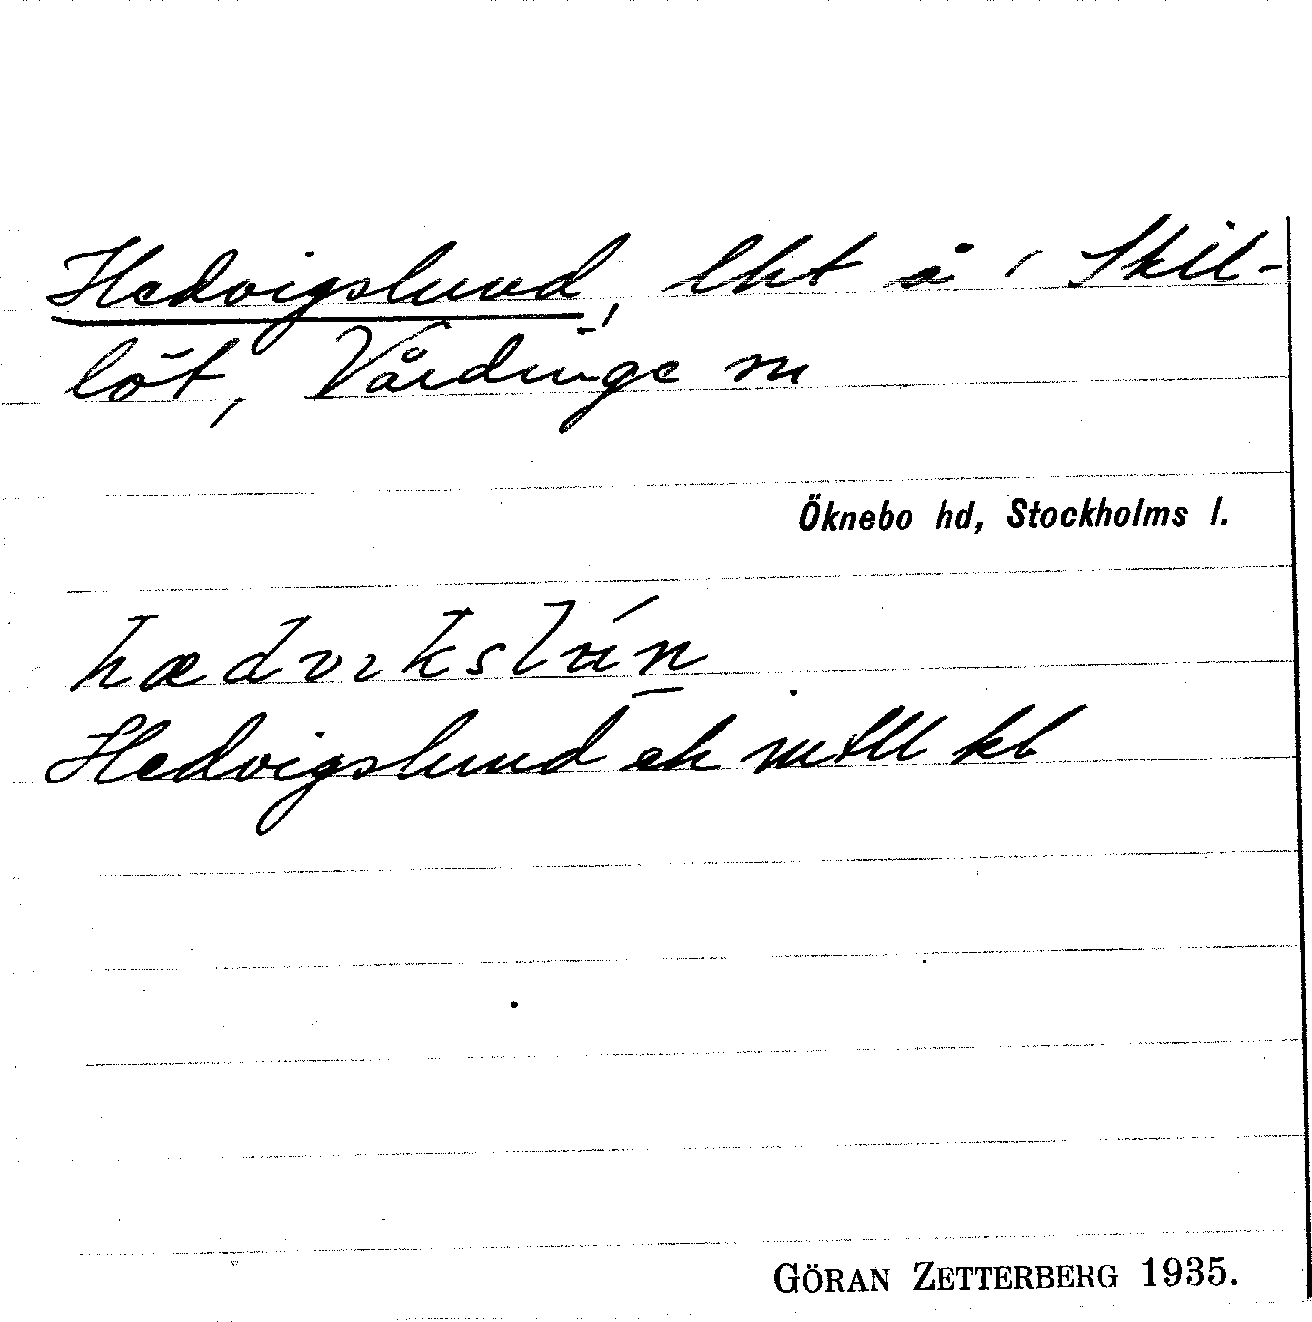 Hedvigslund, lht å Skil-
löt, Vårdinge sn
Öknebo hd, Stockholms l.
hædvikslún
Hedvigslund ek kb
GÖRAN ZETTERBERG 1935.